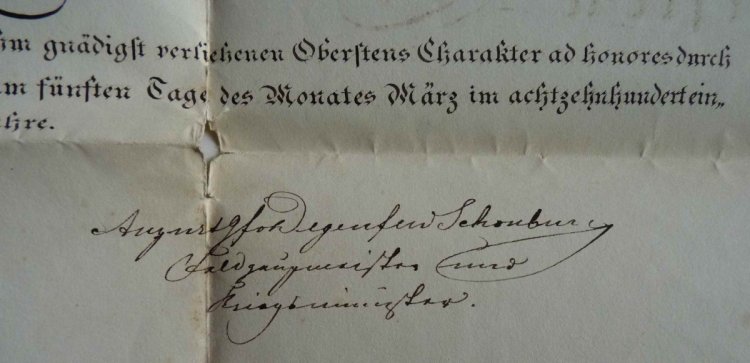 ihm gnädigst verliehenen Oberstens Charakter ad honores durch
am fünften Tage des Monates März im achtzehnhundertein„
ahre.
August Gf v Degenfeld Schonburg
Feldzeugmeister und
Kriegsminister.